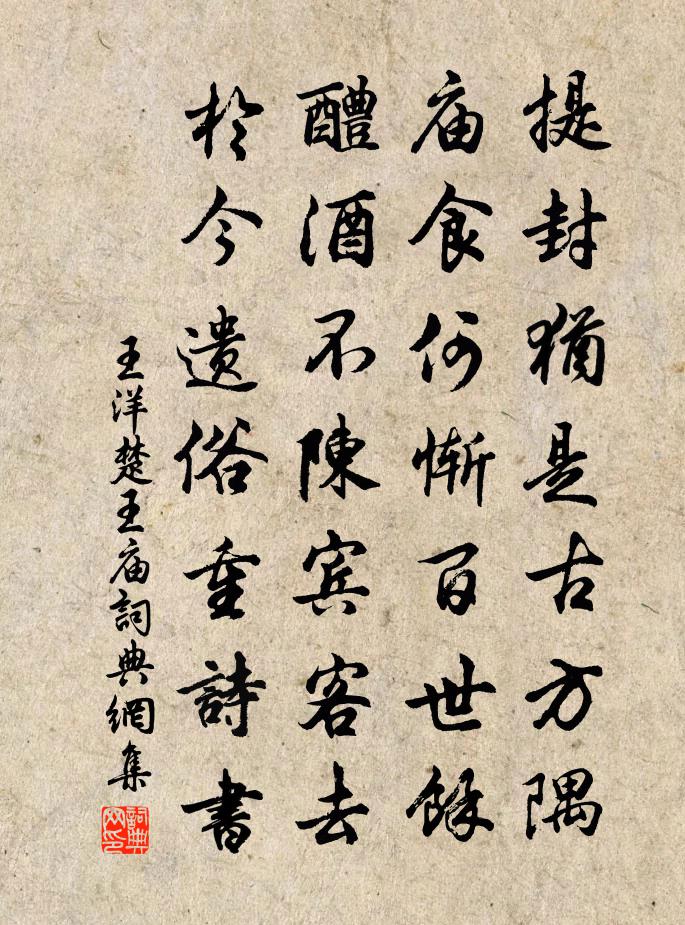 提封猶是古方隅
庙食何慚百世餘
醴酒不陳宾客去
於今遗俗重詩書
王洋楚王庙詞典網集
詞典网印